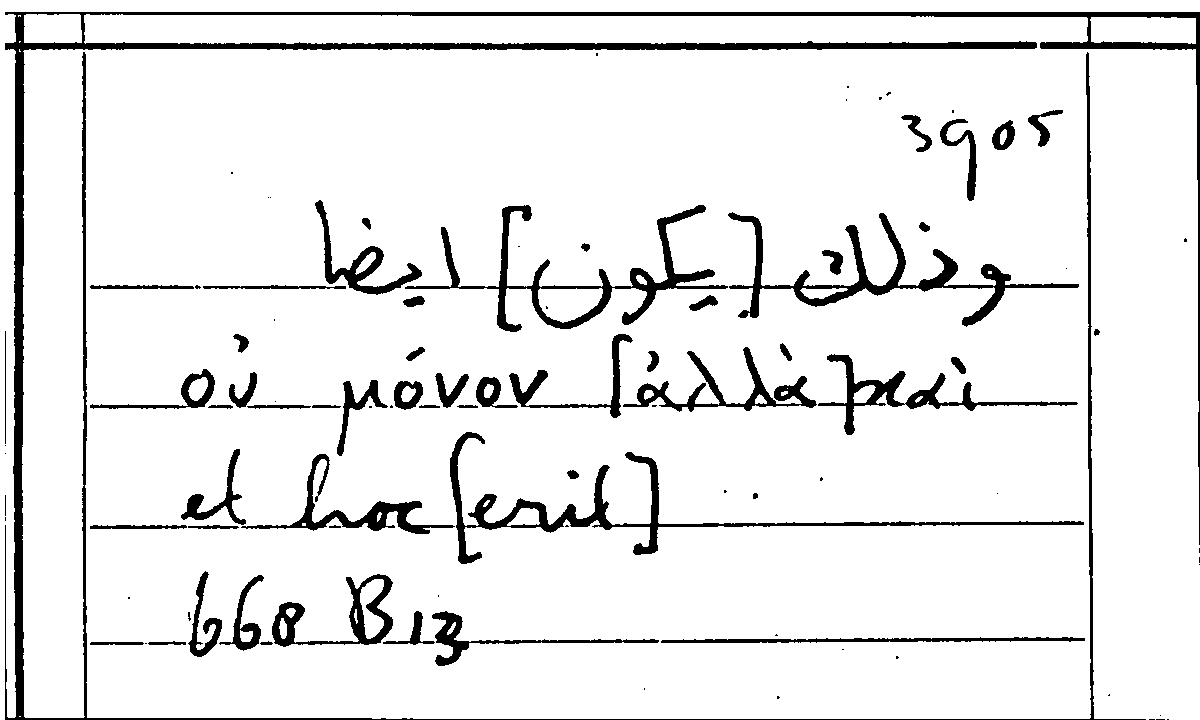 3905
وذلك [يكون] ايضا
οὐ μόνον [ἀλλὰ] καὶ
et hoc [erit]
668 B13